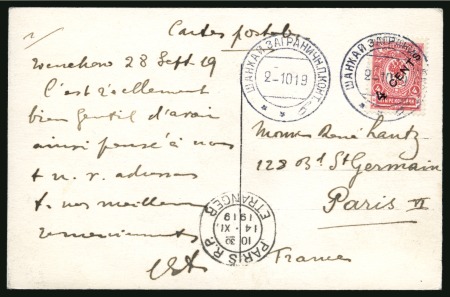 Cartes postale
Wenchow 28 Sept 19
C'est réellement
bien gentil d'avoir
ainsi pensé à nous
vos meilleurs
remerciements
ШАНХАЙ ЗАГРАНИЧН.П.КОНТ.
2-10 19
ШАНХАЙ ЗАГРАНИЧН
4 CENTS
Monsieur René
123 Bd St Germain
Paris VI
France
PARIS R.P.
10 30
14 · XI
1919
ETRANGER